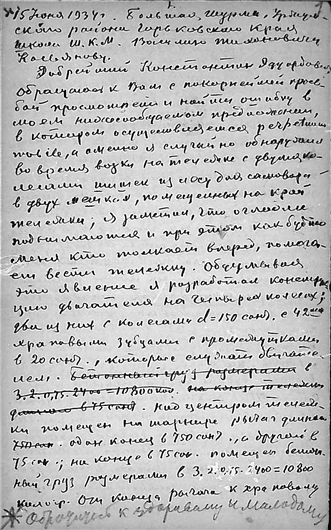 15 июня 1934 г. Большая Шурма, Уржум
ского района Горьковского Края
школа Ш.К.М. Василию Тихановичу
Касьянову.
Добрейший Константин Эдуардович
Обращаюсь к Вам с покорнейшей прось
бой просмотреть и найти ошибку в
моем нижесообщаемом предложении,
в котором осуществляется perpetuum
mobile, а именно я случайно обнаружил
во время возки на тележке с двумя ко-
лесами шишек из леса для самовара
в двух мешках, помещенных на край
тележки; я заметил, что оглобли
поднимаются и при этом как будто
меня кто толкает вперед, помога-
ет вести тележку. Обдумывая
это явление я разработал конструк
цию двигателя на четырех колесах;
два из них с колесами d=150 сант. с 42мя
храповыми зубцами с промежутками
в 20 сант., которые служат двигате
лем. Бетонный груз размерами в
3.2.0,75.2400=10800 кил. на конце
в 75 сант. Над центром тележ
ки помещен на шарнире рычаг длиною
750 сант. один конец в 750 сант., а другой в
75 сан.; на конце в 75 сан. помещен бетон
ный груз размерами в 3.2.0,75.2400=10800
килогр. От конца рычага к храповому
* Обращаюсь к здоровому и молодому